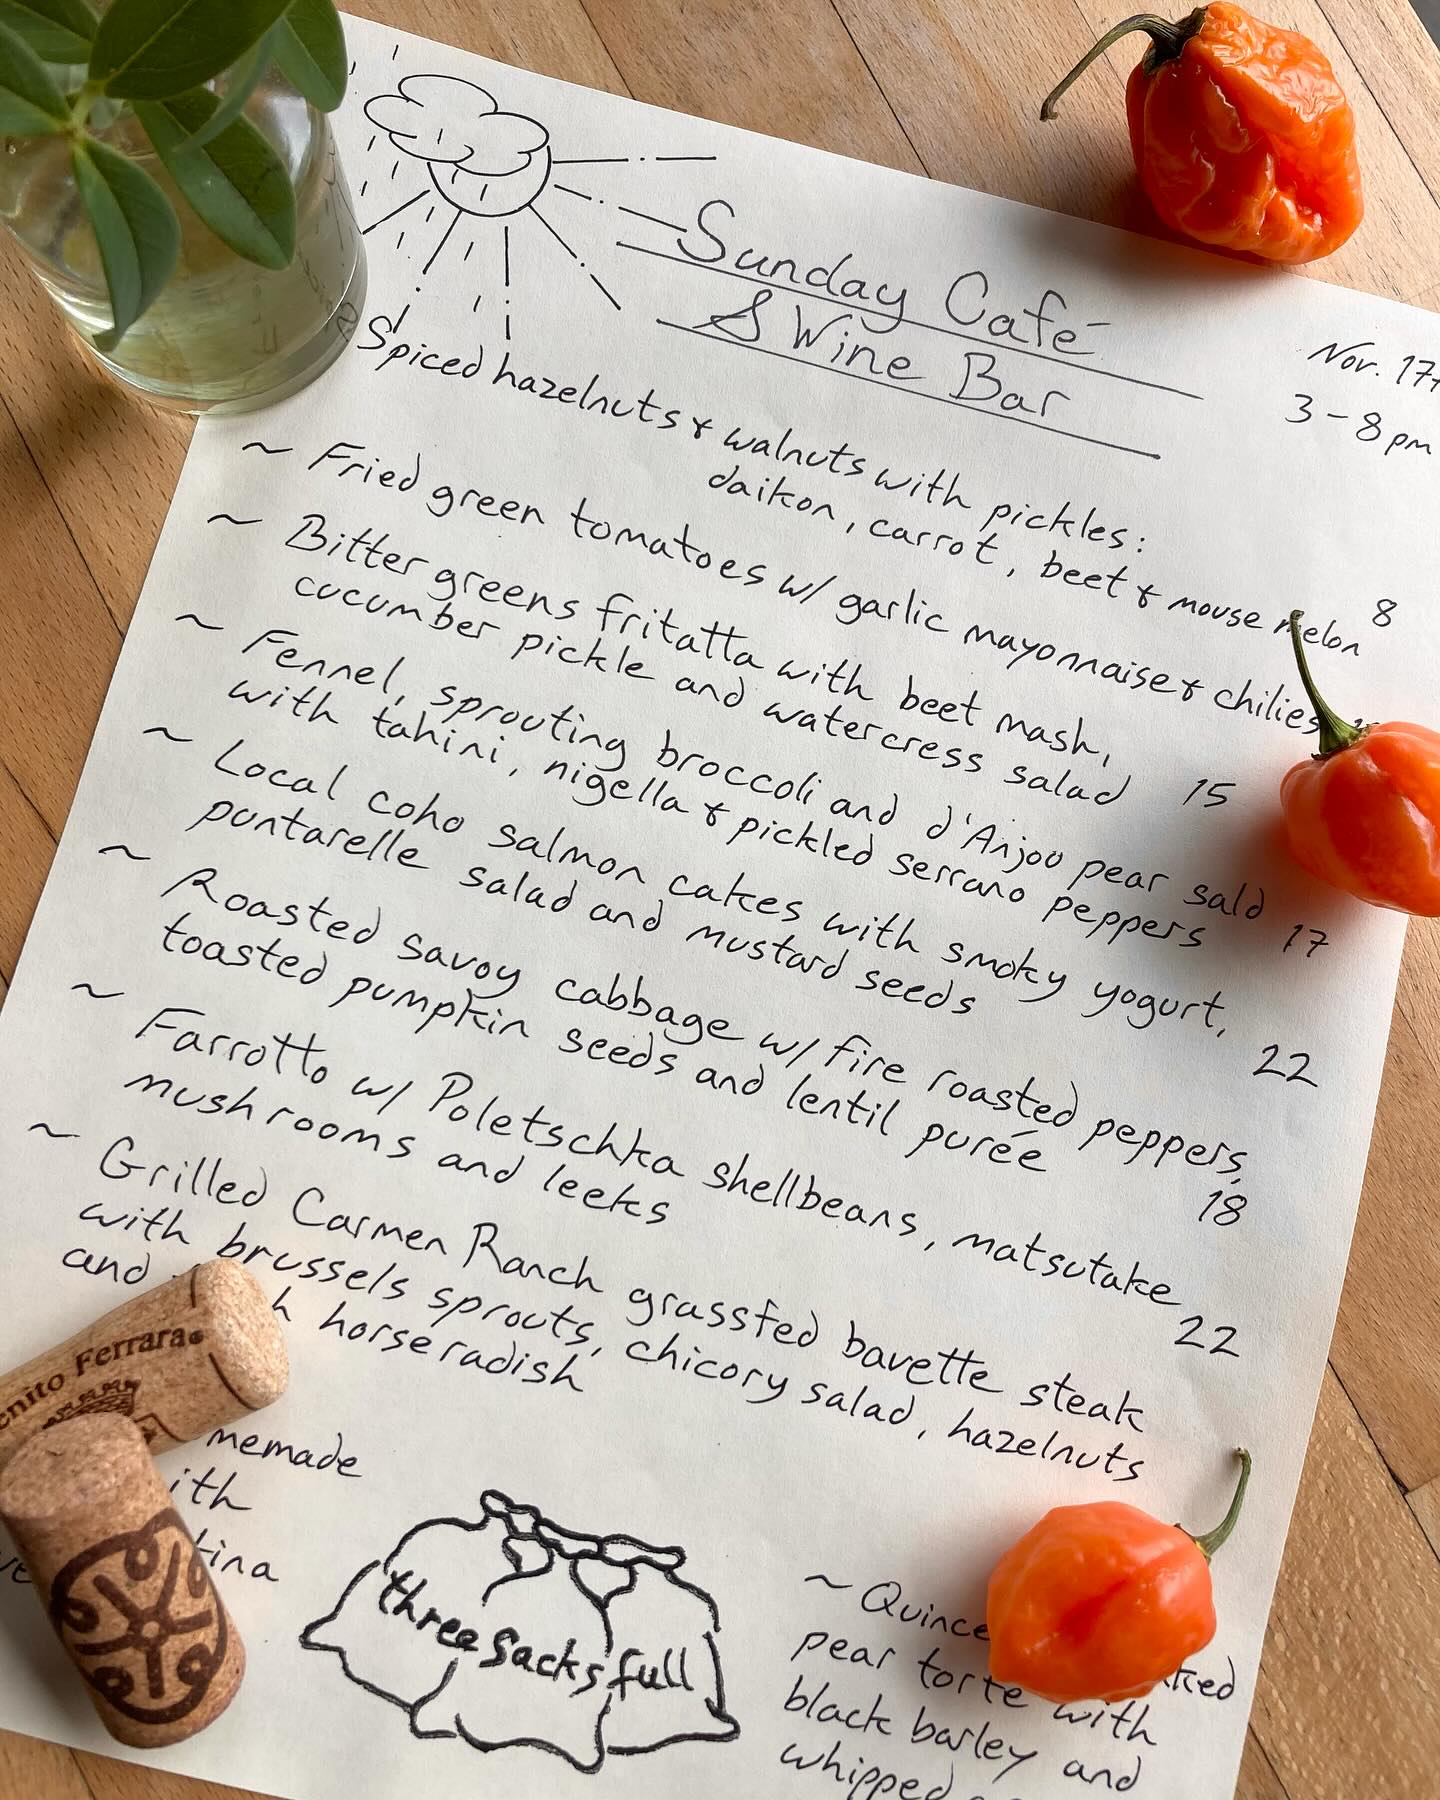 Sunday Café
& Wine Bar
Nov. 17
3 - 8 pm
Spiced hazelnuts & walnuts with pickles:
daikon, carrot, beet & mouse melon 8
~ Fried green tomatoes w/ garlic mayonnaise & chilies
~ Bitter greens fritatta with beet mash,
cucumber pickle and watercress salad 15
~ Fennel, sprouting broccoli and d'Anjou pear sald
with tahini, nigella & pickled serrano peppers 17
~ Local coho salmon cakes with smoky yogurt,
puntarelle salad and mustard seeds 22
~ Roasted savoy cabbage w/ fire roasted peppers,
toasted pumpkin seeds and lentil purée 18
~ Farrotto w/ Poletschka shellbeans, matsutake
mushrooms and leeks 22
~ Grilled Carmen Ranch grassfed bavette steak
with brussels sprouts, chicory salad, hazelnuts
and horseradish
enito Ferrara
memade
ith
tina
three sacks full
~ Quince
pear torte with
black barley and
whipped